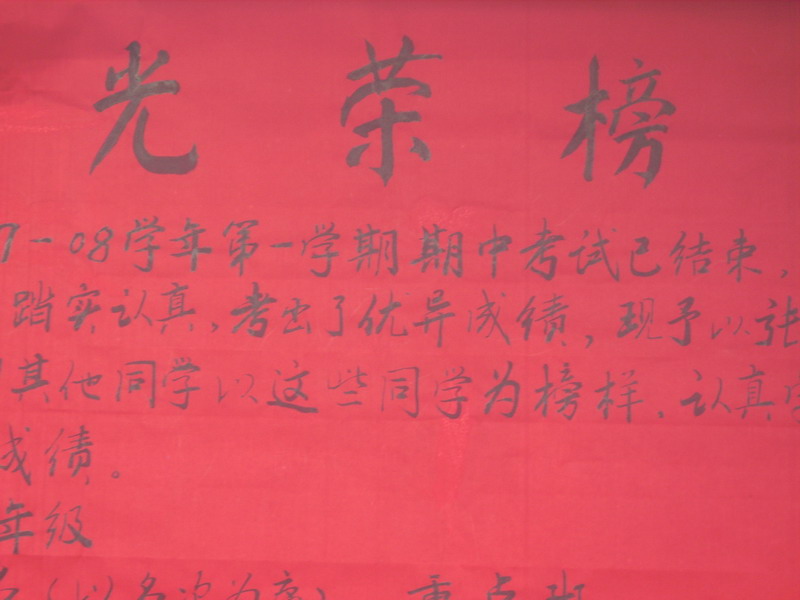 光荣榜
7-08学年第一学期期中考试已结束,
踏实认真,考出了优异成绩,现予以张
其他同学以这些同学为榜样,认真学
成绩。
年级
(以名次为序) 重点班